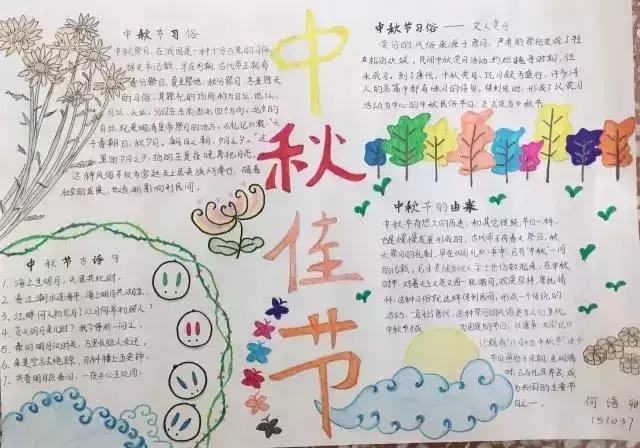 中秋佳节
中秋节习俗
中秋祭月,在我国是一种十分古老的习俗。
据史书记载,早在周朝,古代帝王就有
春分祭日、夏至祭地、秋分祭月、冬至祭天
的习俗,其祭祀的场所称为日坛、地坛、
月坛、天坛,分设在东南西北四个方向。北京的
月坛就是明清皇帝祭月的地方。《礼记》载:“天
子春朝日,秋夕月。朝日之朝,夕月之夕。”这
里的夕月之夕,指的正是夜晚祭祀月亮。
这种风俗不仅为宫廷及上层贵族所奉行,随着
社会的发展,也逐渐影响到民间。
中秋节习俗——文人赏月
赏月的风俗来源于祭月,严肃的祭祀变成了轻
松的欢娱。民间中秋赏月活动约始魏晋时期,但
未成习。到了唐代,中秋赏月、玩月颇为盛行,许多诗
人的名篇中都有咏月的诗句,
为中心的中秋民俗节日,正式定为中秋节。
中秋节的由来
中秋节有悠久的历史,和其它传统节日一样,
也是慢慢发展形成的,古代帝王有春天祭日,秋
天祭月的礼制,早在《周礼》一书中,已有“中秋”一词
的记载。后来贵族和文人学士也仿效起来,在中秋
时节,对着天上又亮又圆一轮皓月,观赏祭拜,寄托情
怀,这种习俗就这样传到民间,形成一个传统的
活动,一直到了唐代,这种祭月的风俗更为人们重视,
中秋节才成为固定的节日,《唐书·太宗记》
记载有“八月十五中秋节”,这个
节日盛行于宋朝,至明清
时,已与元旦齐名,成
为我国的主要节
日之一。
中秋节古诗句
1、海上生明月,天涯共此时。
2、春江潮水连海平,海上明月共潮生。
3、江畔何人初见月?江月何年初照人?
4、青天有月来几时?我今停杯一问之。
5、秦时明月汉时关,万里长征人未还。
6、来是空言去绝踪,月斜楼上五更钟。
7、共看明月应垂泪,一夜乡心五处同。
何语
151037